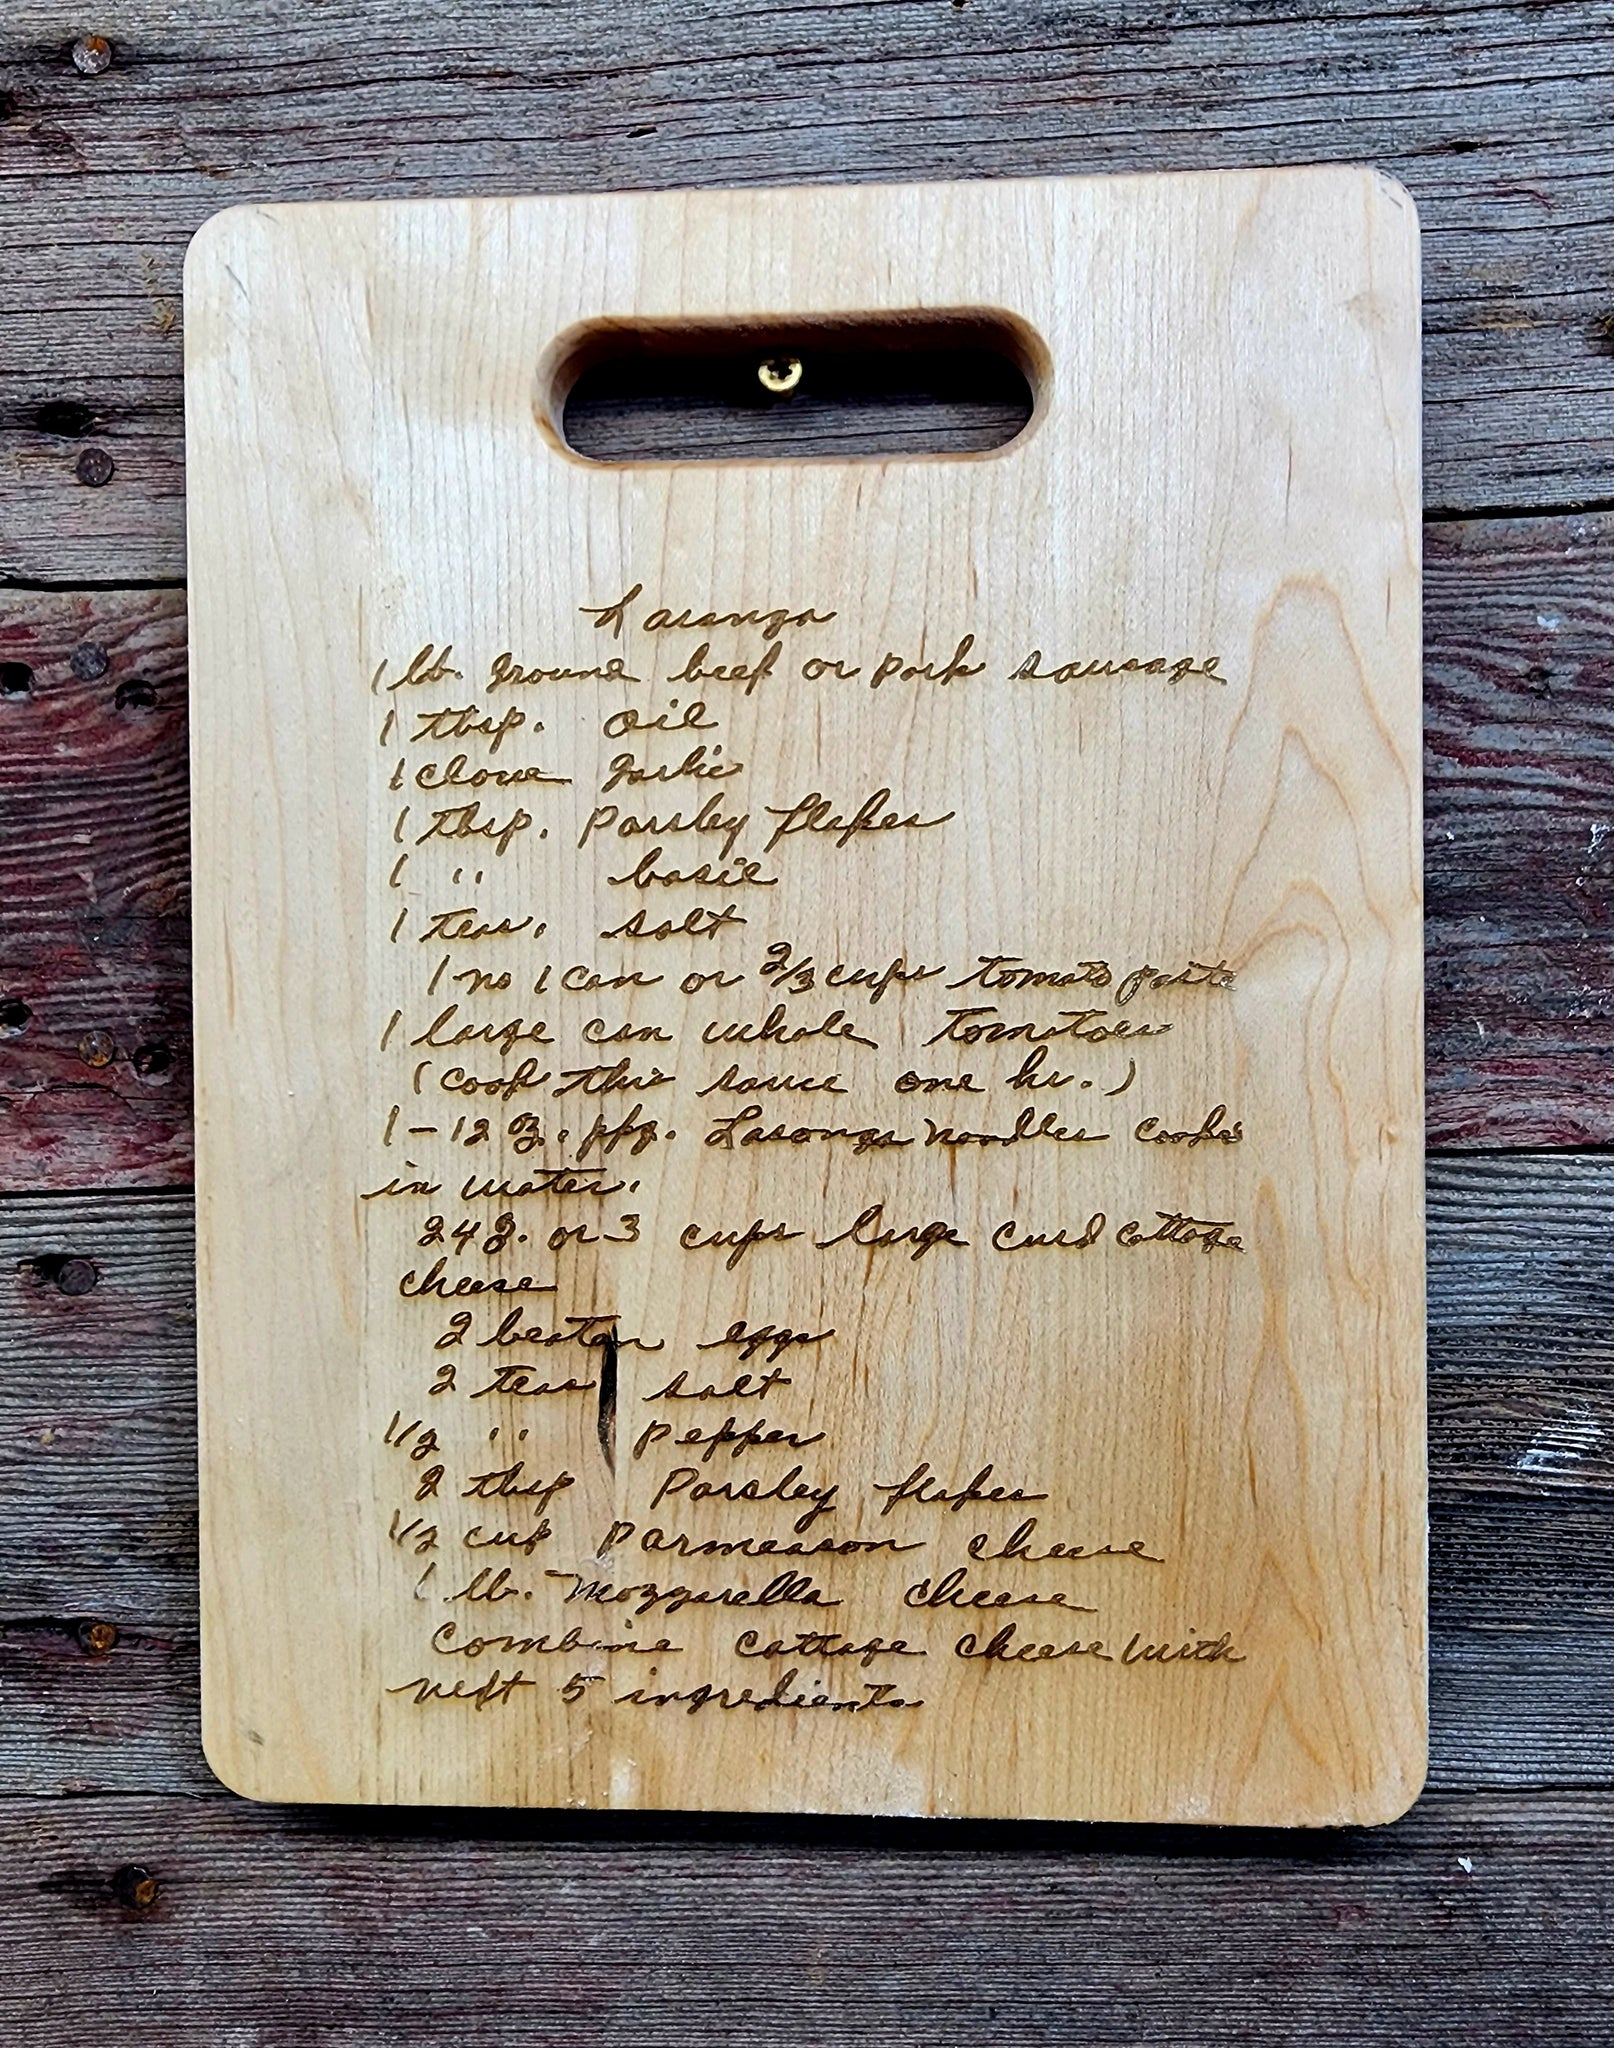 Lasanga
1 lb. ground beef or pork sausage
1 tbsp. Oil
1 clove garlic
1 tbsp. Parsley flakes
1 " basil
1 teas. salt
1 no 1 can or 2/3 cups tomato paste
1 large can whole tomatoes
(cook this sauce one hr.)
1-12 oz. pkg. Lasanga noodles cooked
in water.
24 oz. or 3 cups large curd cottage
cheese
2 beaten eggs
2 teas salt
1/2 " pepper
2 tbsp Parsley flakes
1/2 cup Parmeason cheese
1 lb. Mozzarella cheese
Combine cottage cheese with
next 5 ingredients